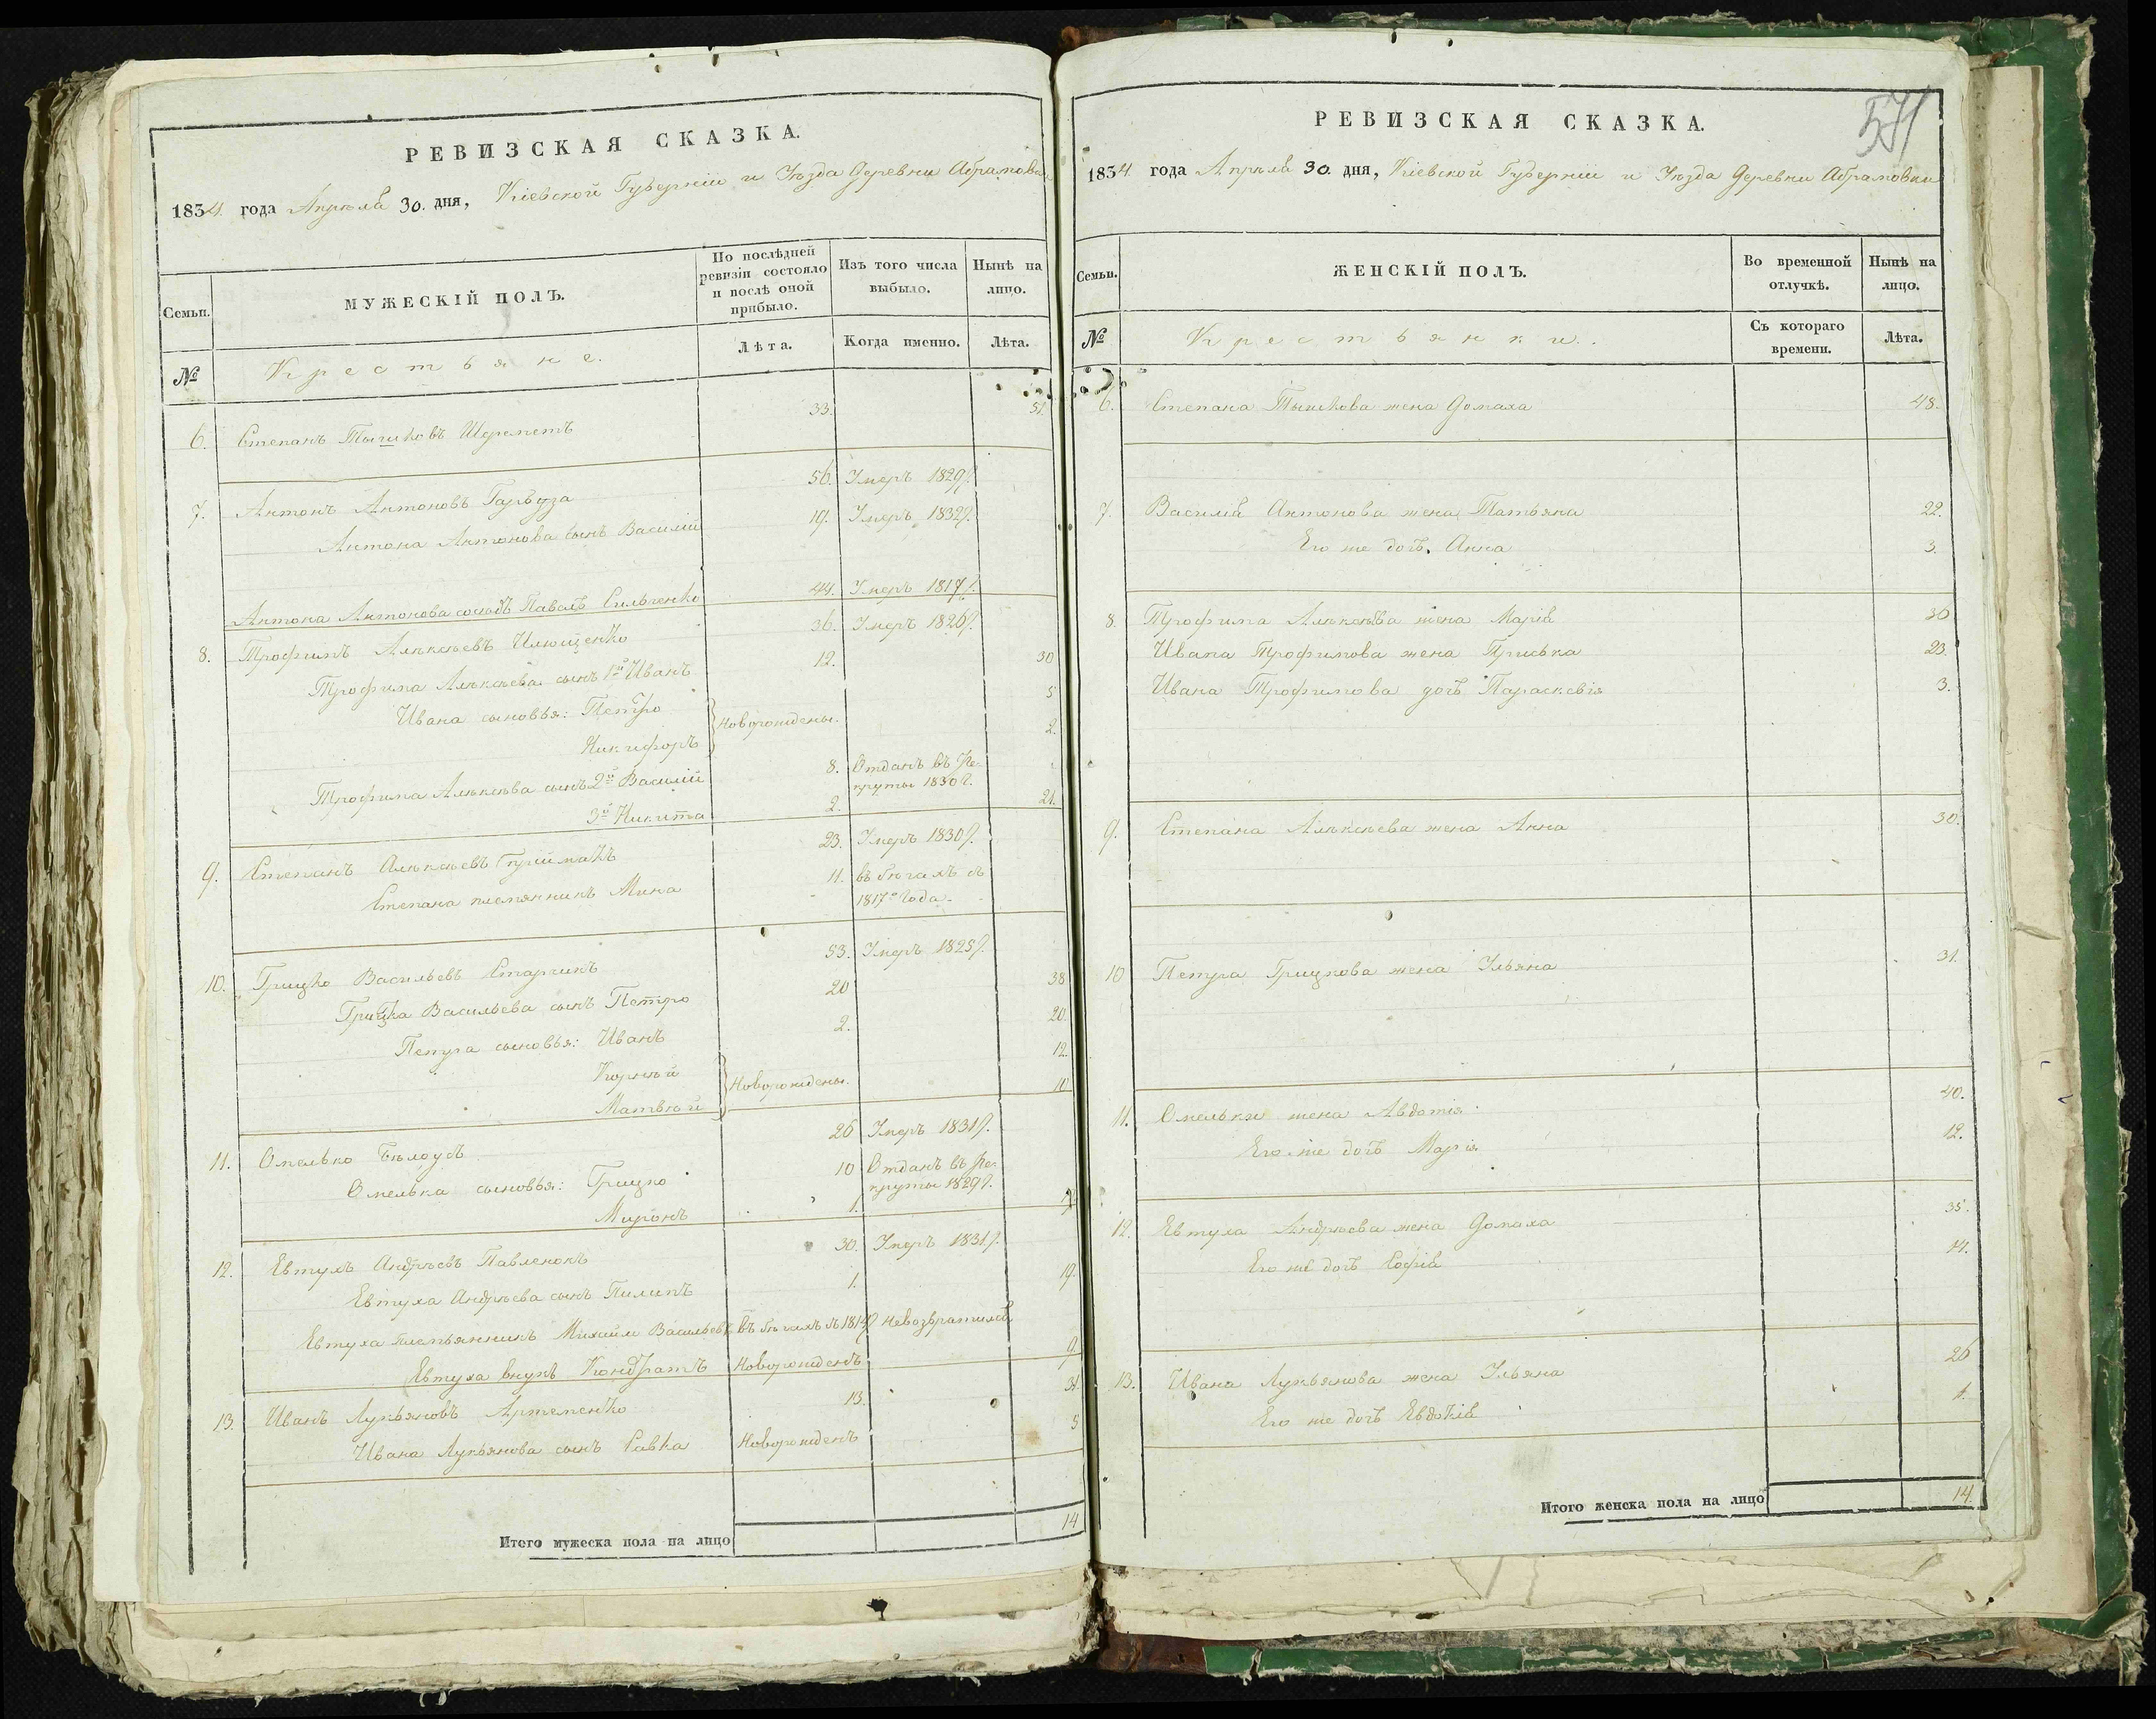 РЕВИЗСКАЯ СКАЗКА.
1834. года Апрѣля 30. дня, Кіевской Губерніи и Уѣзда Деревни Абрамовки
Семьи.
МУЖЕСКІЙ ПОЛЪ.
По послѣдней ревизіи состояло и послѣ оной прибыло.
Изъ того числа выбыло.
Нынѣ на лицо.
№
Крестьяне.
Лѣта.
Когда именно.
Лѣта.
6. Степанъ Тышковъ Шереметъ 33. 51.
7. Антонъ Антоновъ Гарбуза 56. Умеръ 1829г.
Антона Антонова сынъ Василій 19. Умеръ 1832г.
Антона Антонова Павалъ 44. Умеръ 1817г.
8. Трофимъ Алексѣевъ Илющенко 36. Умеръ 1826г.
Трофима Алексѣева сынъ 1й Иванъ 12. 30
Ивана сыновья: Петро 5
Никифоръ Новорождены. 2.
Трофима Алексѣева сынъ 2й Василій 8. Отданъ въ Рекруты 1830г.
3й Никита 2. 21.
9. Степанъ Алексѣевъ 23. Умеръ 1830г.
Степана племянникъ Мина 11. въ бѣгахъ съ 1817о года.
10. Грицко Васильевъ Старчикъ 53. Умеръ 1825г.
Грицка Васильева сынъ Петро 20 38
Петра сыновья: Иванъ 2. 20.
Корнѣй 12.
Матвѣй Новорождены. 10
11. Омелько Бѣлоусъ 26 Умеръ 1831г.
Омелька сыновья: Грицко 10 Отданъ въ Рекруты 1829г.
Миронъ 1.
12. Евтухъ Андрѣевъ Павленокъ 30. Умеръ 1831г.
Евтуха Андрѣева сынъ Пилипъ 1. 19.
Евтуха племянникъ Михайло Васильевъ въ бѣгахъ съ невозвратился
Евтуха внукъ Кондратъ Новорожденъ 9
13. Иванъ Лукьяновъ Артеменко 13. 31.
Ивана Лукьянова сынъ Савка Новорожденъ 5
Итого мужеска пола на лицо 14
571
РЕВИЗСКАЯ СКАЗКА.
1834. года Апрѣля 30. дня, Кіевской Губерніи и Уѣзда Деревни Абрамовки
Семьи.
ЖЕНСКІЙ ПОЛЪ.
Во временной отлучкѣ.
Нынѣ на лицо.
№
Крестьянки.
Съ котораго времени.
Лѣта.
6. Степана Тышкова жена Домаха 48.
7. Василія Антонова жена Татьяна 22.
Его же дочь Анна 3.
8. Трофима Алексѣева жена Марія 50
Ивана Трофимова жена Приська 23.
Ивана Трофимова дочь Параскевія 3.
9. Степана Алексѣева жена Анна 30.
10 Петра Грицкова жена Ульяна 31.
11. Омелька жена Авдотія 40.
Его же дочь Марія 12.
12. Евтуха Андрѣева жена Домаха 35.
Его же дочь Софія 14.
13. Ивана Лукьянова жена Ульяна 26
Его же дочь Евдокія 1.
Итого женска пола на лицо 14.